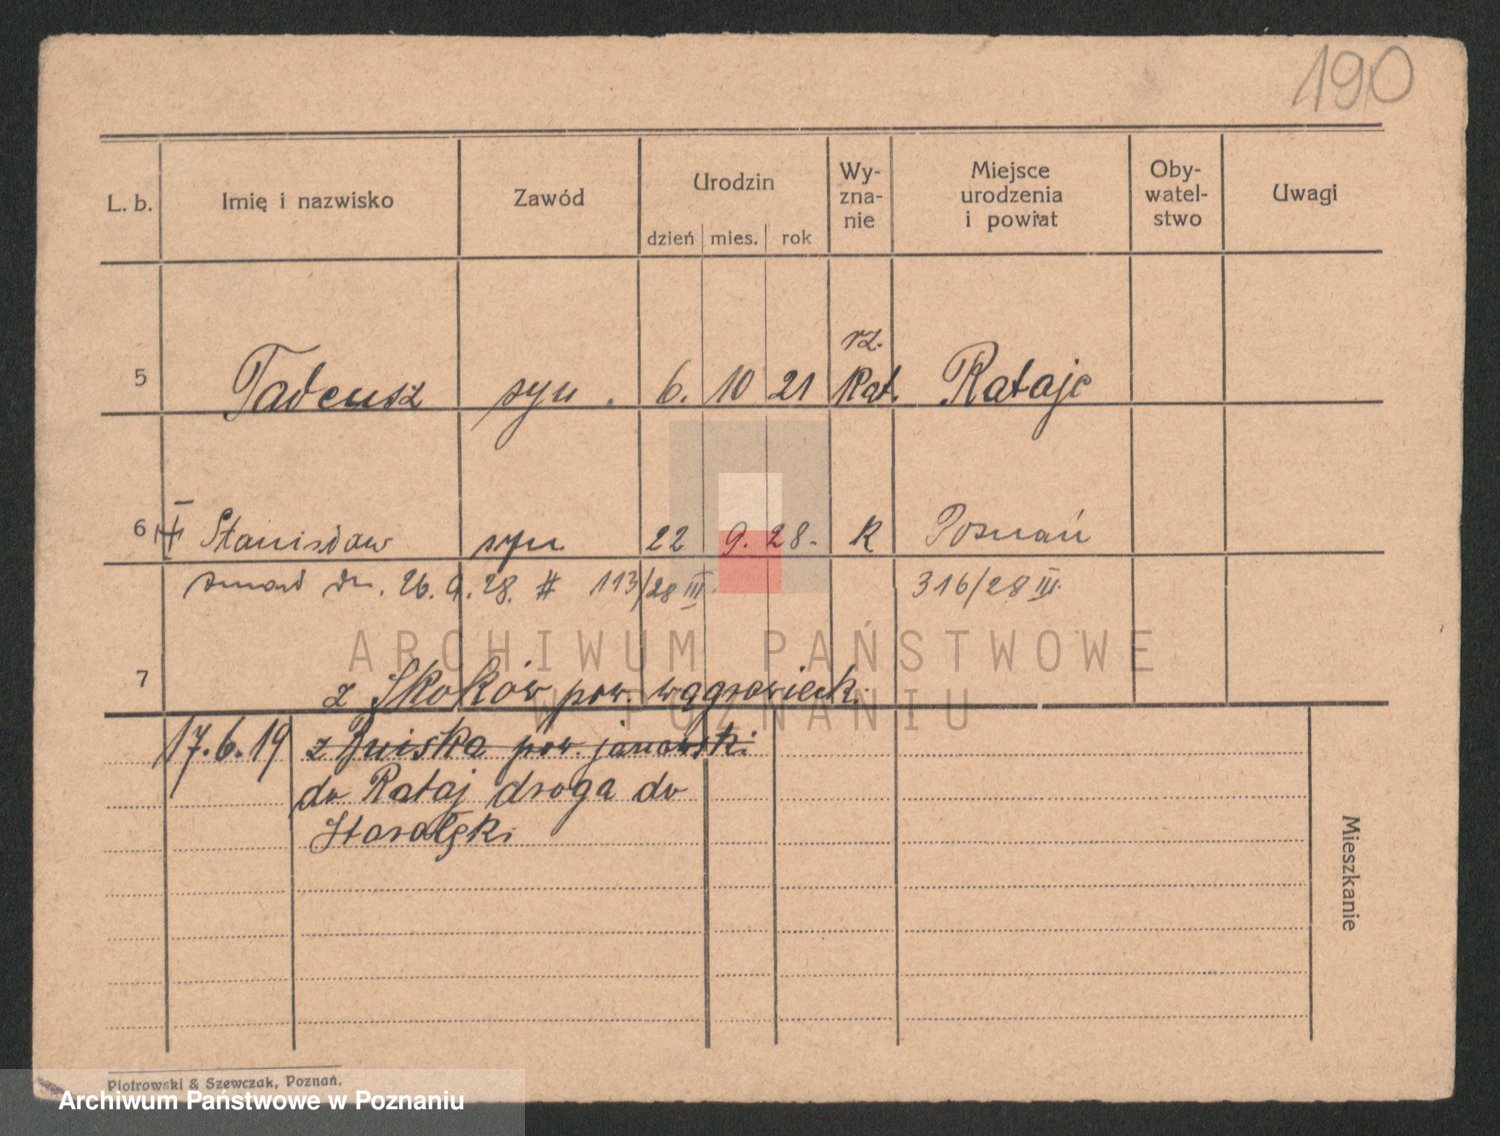 190
L. b. Imię i nazwisko Zawód Urodzin dzień mies. rok Wy-zna-nie Miejsce urodzenia i powiat Oby-watel-stwo Uwagi
rz.
5 Tadeusz syn. 6. 10 21 Kat. Rataje
6 Stanisław syn 22 9. 28. k Poznań
zmarł dn. 26.9.28. # 113/28 III. 316/28 III.
ARCHIWUM PAŃSTWOWE
7 z Skoków pow. wągrowieck.
W POZNANIU
17.6.19 z pow. janowski
do Rataj droga do
Starołęki
Mieszkanie
Piotrowski & Szewczak, Poznań.
Archiwum Państwowe w Poznaniu